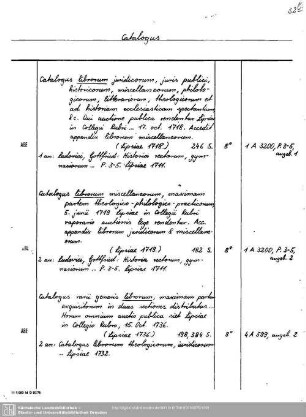 Catalogus
Catalogus librorum juridicorum, juris publici,
historicorum, miscellaneorum, philolo-
gicorum, litterariorum, theologicorum et
ad historiam ecclesiasticam spectantium
&c. Qui auctione publica vendentur Lipsiae
in Collegio Rubro - 17. oct. 1718. Accedit
appendix librorum miscellaneorum.
(Lipsiae 1718.) 246 S. 8° 1 A 3200, P. 3-5, angeb. 1
1 an: Ludovici, Gottfried: Historia rectorum, gym-
nasiorum - P. 3-5. Lipsiae 1711.
Catalogus librorum miscellaneorum, maximam
partem theologico-philologico-practicorum
5. junii 1719 Lipsiae in Collegio Rubri
vaporario auctionis lege vendentur. Acc.
appendix librorum juridicorum & miscellane-
orum.
(Lipsiae 1719) 182 S. 8° 1 A 3200, P. 3-5, angeb. 2
2 an: Ludovici, Gottfried: Historia rectorum, gym-
nasiorum - P. 3-5. Lipsiae 1711.
Catalogus varii generis librorum, maximam partem
exquisitorum in duas sectiones distributus.
Horum omnium auctio publica fiet Lipsiae
in Collegio Rubro, 15. Oct. 1736.
(Lipsiae 1736.) 198, 384 S. 8° 4 A 589, angeb. 2
2 an: Catalogus librorum theologicorum, juridicorum
- Lipsiae 1732.